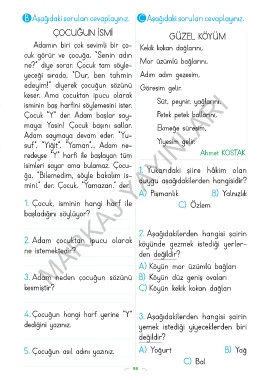 B Aşağıdaki soruları cevaplayınız.
ÇOCUĞUN İSMİ
Adamın biri çok sevimli bir ço-
cuk görür ve çocuğa, "Senin adın
ne?" diye sorar. Çocuk tam söyle-
yeceği sırada, "Dur, ben tahmin
edeyim!" diyerek çocuğun sözünü
keser. Ama çocuktan ipucu olarak
isminin baş harfini söylemesini ister.
Çocuk "Y" der. Adam başlar say-
maya: Yasin! Çocuk başını sallar.
Adam saymaya devam eder. "Yu-
suf", "Yiğit", "Yaman"... Adam ne-
redeyse "Y" harfi ile başlayan tüm
isimleri sayar ama bulamaz. Çocu-
ğa, "Bilemedim, söyle bakalım is-
mini." der. Çocuk, "Yamazan." der.
1. Çocuk, isminin hangi harf ile
başladığını söylüyor?
2. Adam çocuktan ipucu olarak
ne istemektedir?
3. Adam neden çocuğun sözünü
kesmiştir?
4. Çocuğun hangi harf yerine "Y"
dediğini yazınız.
5. Çocuğun asıl adını yazınız.
C Aşağıdaki soruları cevaplayınız.
GÜZEL KÖYÜM
Kekik kokan dağlarını,
Mor üzümlü bağlarını,
Adım adım gezesim,
Göresim gelir.
Süt, peynir, yağlarını,
Petek petek ballarını,
Ekmeğe süresim,
Yiyesim gelir.
Ahmet KOSTAK
1. Yukarıdaki şiire hâkim olan
duygu aşağıdakilerden hangisidir?
A) Pişmanlık B) Yalnızlık
C) Özlem
2. Aşağıdakilerden hangisi şairin
köyünde gezmek istediği yerler-
den değildir?
A) Köyün mor üzümlü bağları
B) Köyün düz geniş ovaları
C) Köyün kekik kokan dağları
3. Aşağıdakilerden hangisi şairin
yemek istediği yiyeceklerden biri
değildir?
A) Yoğurt B) Yağ
C) Bal
MARKAJ YAYINLARI